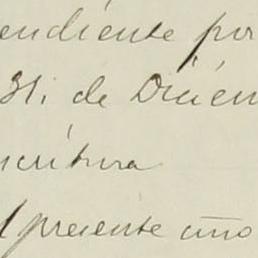 endiente por
31. de Diciem
scritura
l presente año